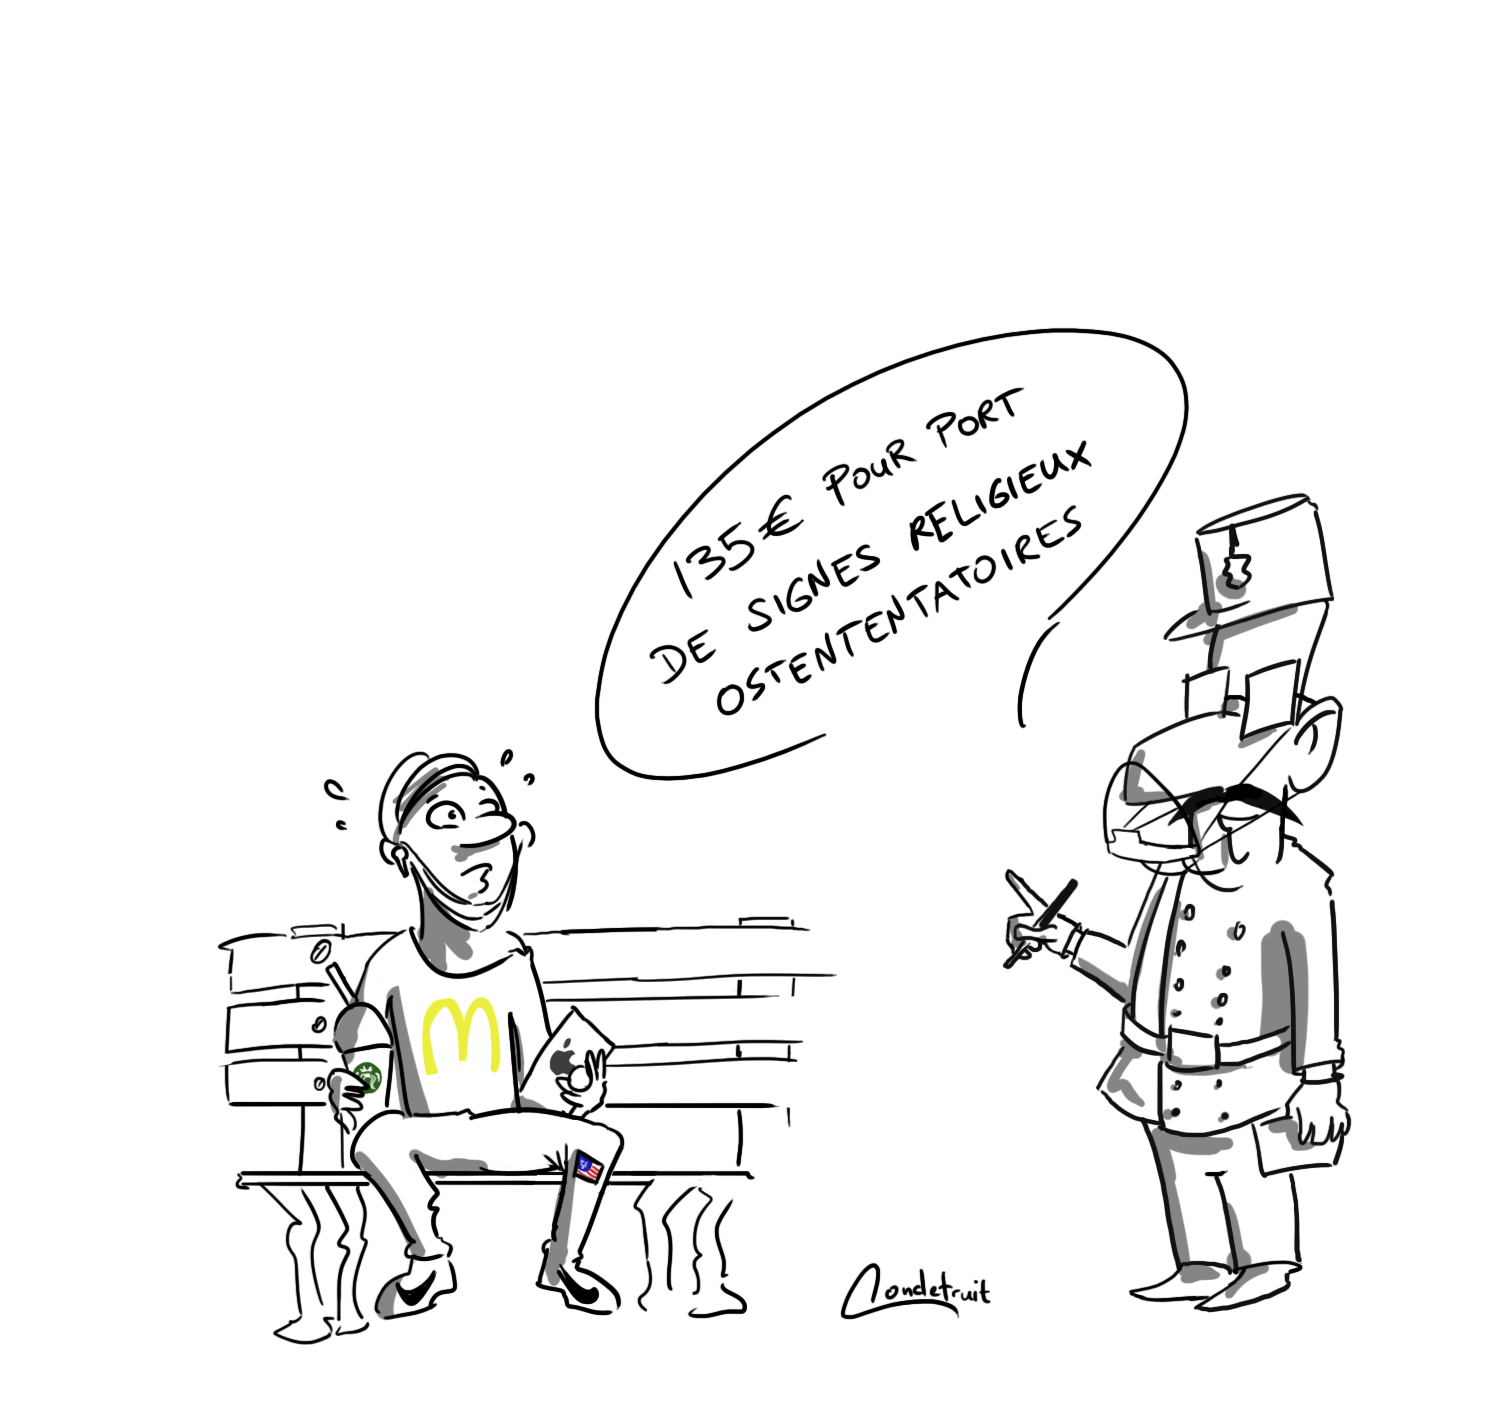 135€ POUR PORT
DE SIGNES RELIGIEUX
OSTENTENTATOIRES
Londetruit